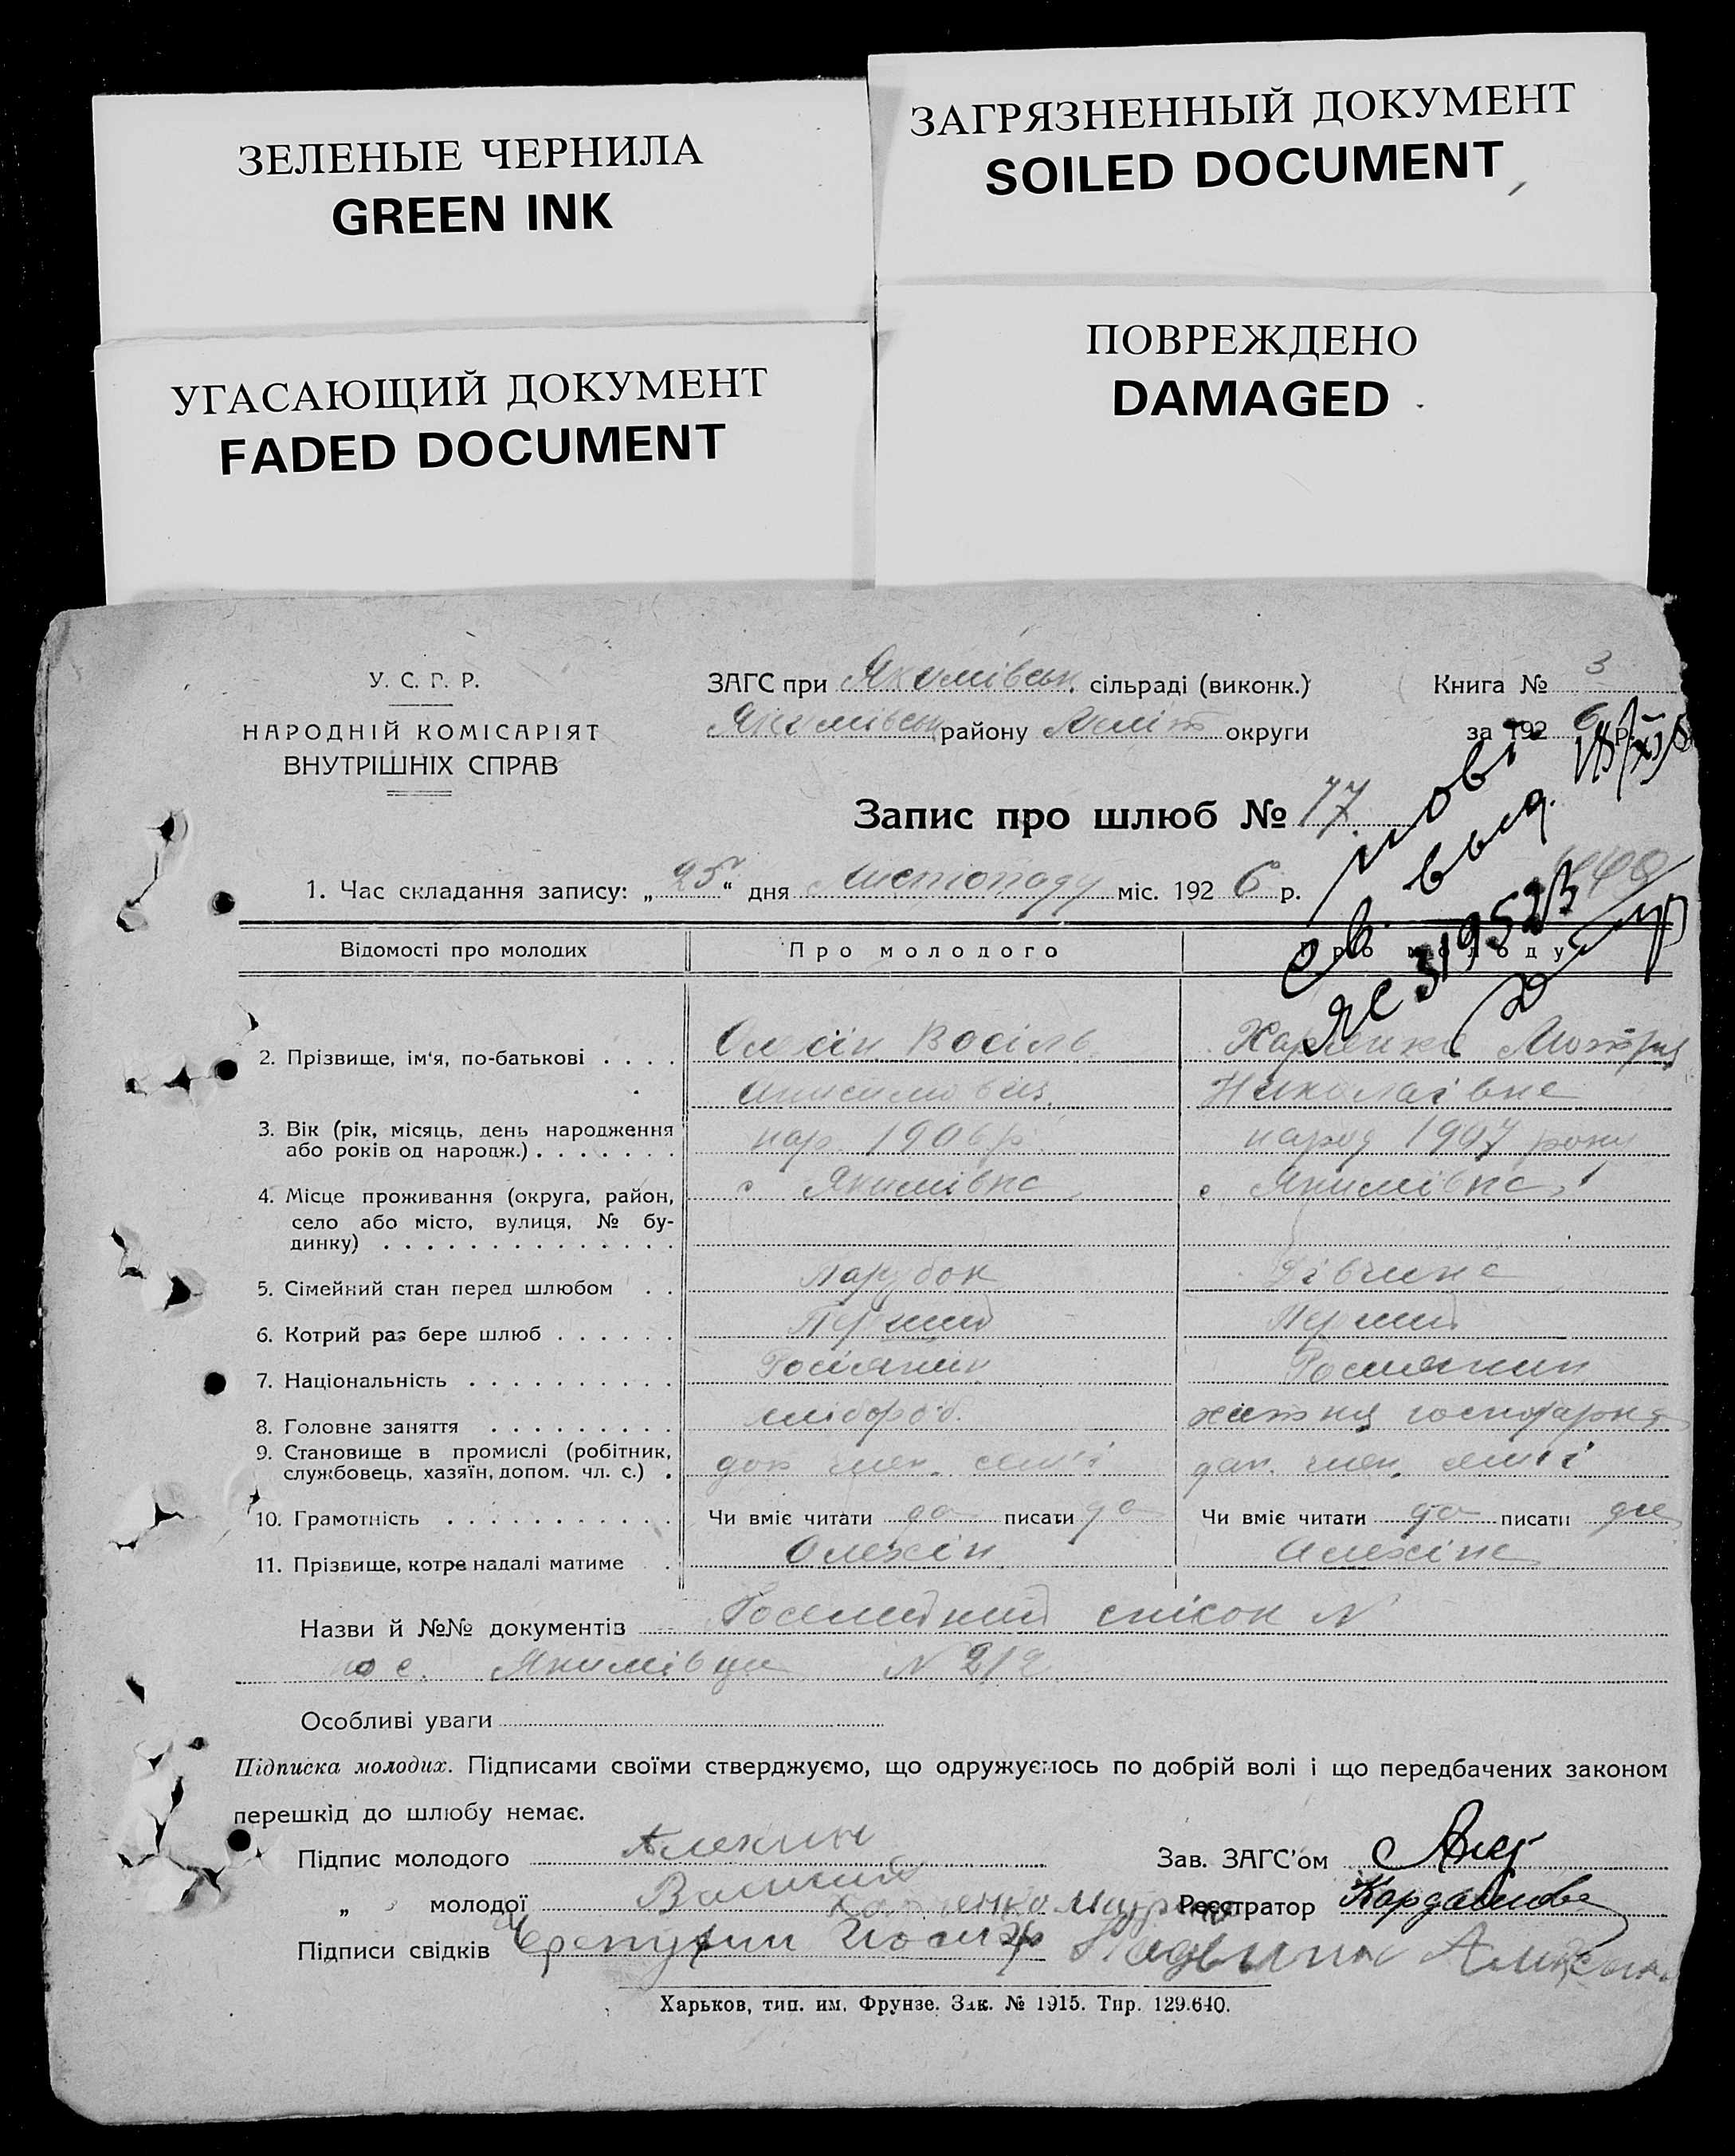 ЗЕЛЕНЫЕ ЧЕРНИЛА
GREEN INK
ЗАГРЯЗНЕННЫЙ ДОКУМЕНТ
SOILED DOCUMENT
УГАСАЮЩИЙ ДОКУМЕНТ
FADED DOCUMENT
ПОВРЕЖДЕНО
DAMAGED
У. С. Р. Р.
НАРОДНІЙ КОМІСАРІЯТ
ВНУТРІШНІХ СПРАВ
ЗАГС при Якимівськ. сільраді (виконк.)
Якимівськ району Меліт округи
Книга № 3
за 192 6 р.
Запис про шлюб № 77.
1. Час складання запису: „ 25 “ дня Листопаду міс. 192 6 р.
Відомості про молодих Про молодого Про молоду
2. Прізвище, ім‘я, по-батькові . . . . Олехін Васіль Харченко Мотря
Анисимовіч. Николаівна
3. Вік (рік, місяць, день народження
або років од народж.) . . . . . . . нар. 1906 р. народ 1907 року
4. Місце проживання (округа, район, с Якимівка с Якимівка
село або місто, вулиця, № бу-
динку) . . . . . . . . . . . . . .
5. Сімейний стан перед шлюбом . . Парубок Дівчина
6. Котрий раз бере шлюб . . . . . . Перший Перший
7. Національність . . . . . . . . . . Росіянин Росиянин
8. Головне заняття . . . . . . . . . хлібороб. хатня господарка
9. Становище в промислі (робітник,
службовець, хазяїн, допом. чл. с.) . доп член. семʼі доп. член. семʼі
10. Грамотність . . . . . . . . . . . Чи вміє читати да писати да Чи вміє читати да писати да
11. Прізвище, котре надалі матиме . Олехін Алехіна
Назви й №№ документів Посемейний список №
по с. Якимівци № 212
Особливі уваги
Підписка молодих. Підписами своїми стверджуємо, що одружуємось по добрій волі і що передбачених законом
перешкід до шлюбу немає.
Підпис молодого Алехин Зав. ЗАГС'ом
„ молодої Василий Харченко Реєстратор Кардашова
Підписи свідків Черепухин Иосиф
Харьков, тип. им. Фрунзе. Зак. № 1915. Тир. 129.640.